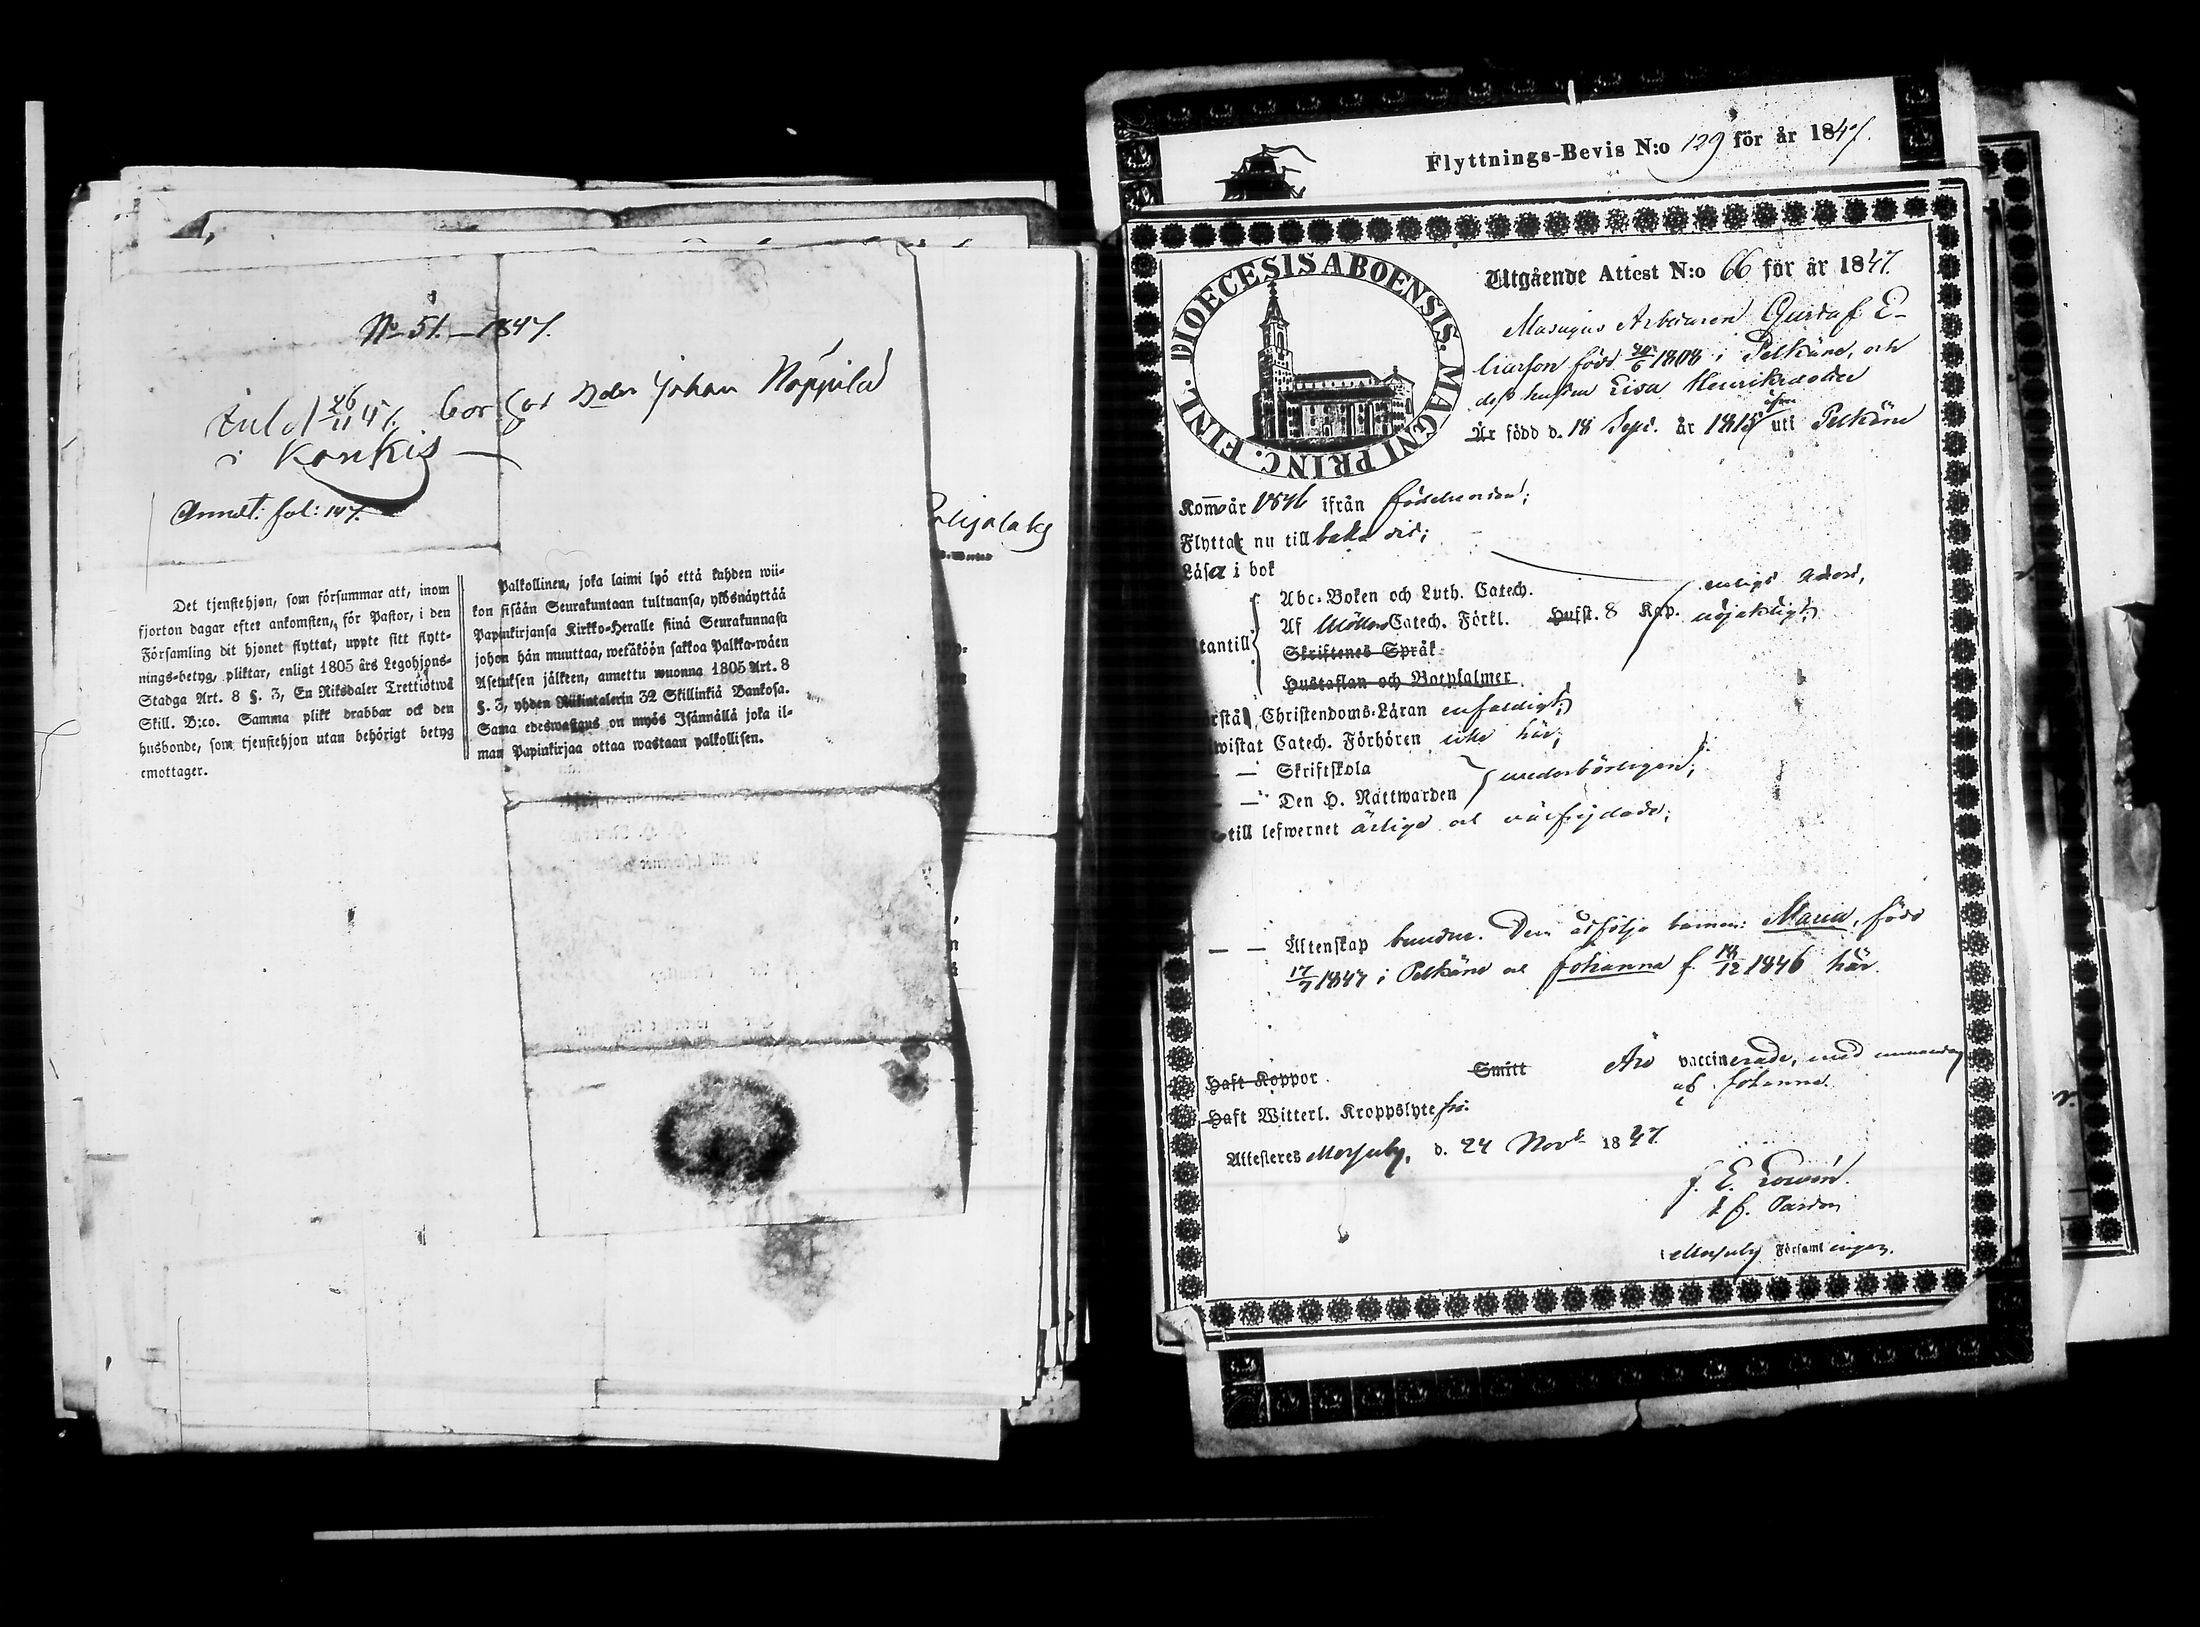 No 51. — 1847.
Inl. d 26/11 47. bor hos Bdn Johan Noppila
i Konkis —
Annot: fol: 147.
Det tjenstehjon, som försummar att, inom
fjorton dagar efter ankomsten, för Pastor, i den
Församling dit hjonet flyttat, uppte sitt flytt-
nings-betyg, pliktar, enligt 1805 års Legohjons-
Stadga Art. 8 §. 3, En Riksdaler Trettiotwå
Skill. B:co. Samma plikt drabbar ock den
husbonde, som tjenstehjon utan behörigt betyg
emottager.
Palkollinen, joka laimi lyö että kahden wii-
kon sisään Seurakuntaan tultuansa, ylösnäyttää
Papinkirjansa Kirkko-Heralle siinä Seurakunnasa
johon hän muuttaa, wetäköön sakkoa Palkka-wäen
Asetuksen jälkeen, annettu wuonna 1805 Art. 8
§. 3, yhden Riikintalerin 32 Skillinkiä Bankosa.
Sama edeswastaus on myös Isännällä joka il-
man Papinkirjaa ottaa wastaan palkollisen.
Flyttnings-Bevis N:o 129 för år 1847.
DIOECESIS ABOENSIS. MAGNI PRINC. FINL.
Utgående Attest N:o 66 för år 1847.
Arbetaren Gustaf E-
liasson född 20/6 1808 i Pelkäne, och
dess hustru Lisa Henriksdotter
Är född d. 18 Sept. år 1815 äfven uti Pelkäne
Kom år 1846 ifrån födelseorten;
Flytta nu tillbaka dit;
Läsa i bok
Abc-Boken och Luth. Catech.
Af Möllers Catech. Förkl. Hufst. 8 Kap.
enligt
nöjaktigt;
tantill
Skriftenes Språk
Hustaflan och Botpsalmer
rstå Christendoms-Läran enfaldigt;
wistat Catech. Förhören icke här;
— — Skriftskola
— — Den H. Nattwarden
vederbörligen;
till lefwernet ärliga och välfrejdade;
— — Äktenskap bundne. Dem åtfölja barnen: Maria, född
17/7 1847 i Pelkäne och Johanna f. 18/12 1846 här.
Haft Koppor. Smitt Äro vaccinerade, med undantag
af Johanna.
Haft Witterl. Kroppslyte fri.
Attesteres Merjuby, d. 24 Novb 1847
J. E.
Pastor
i Församlingen.